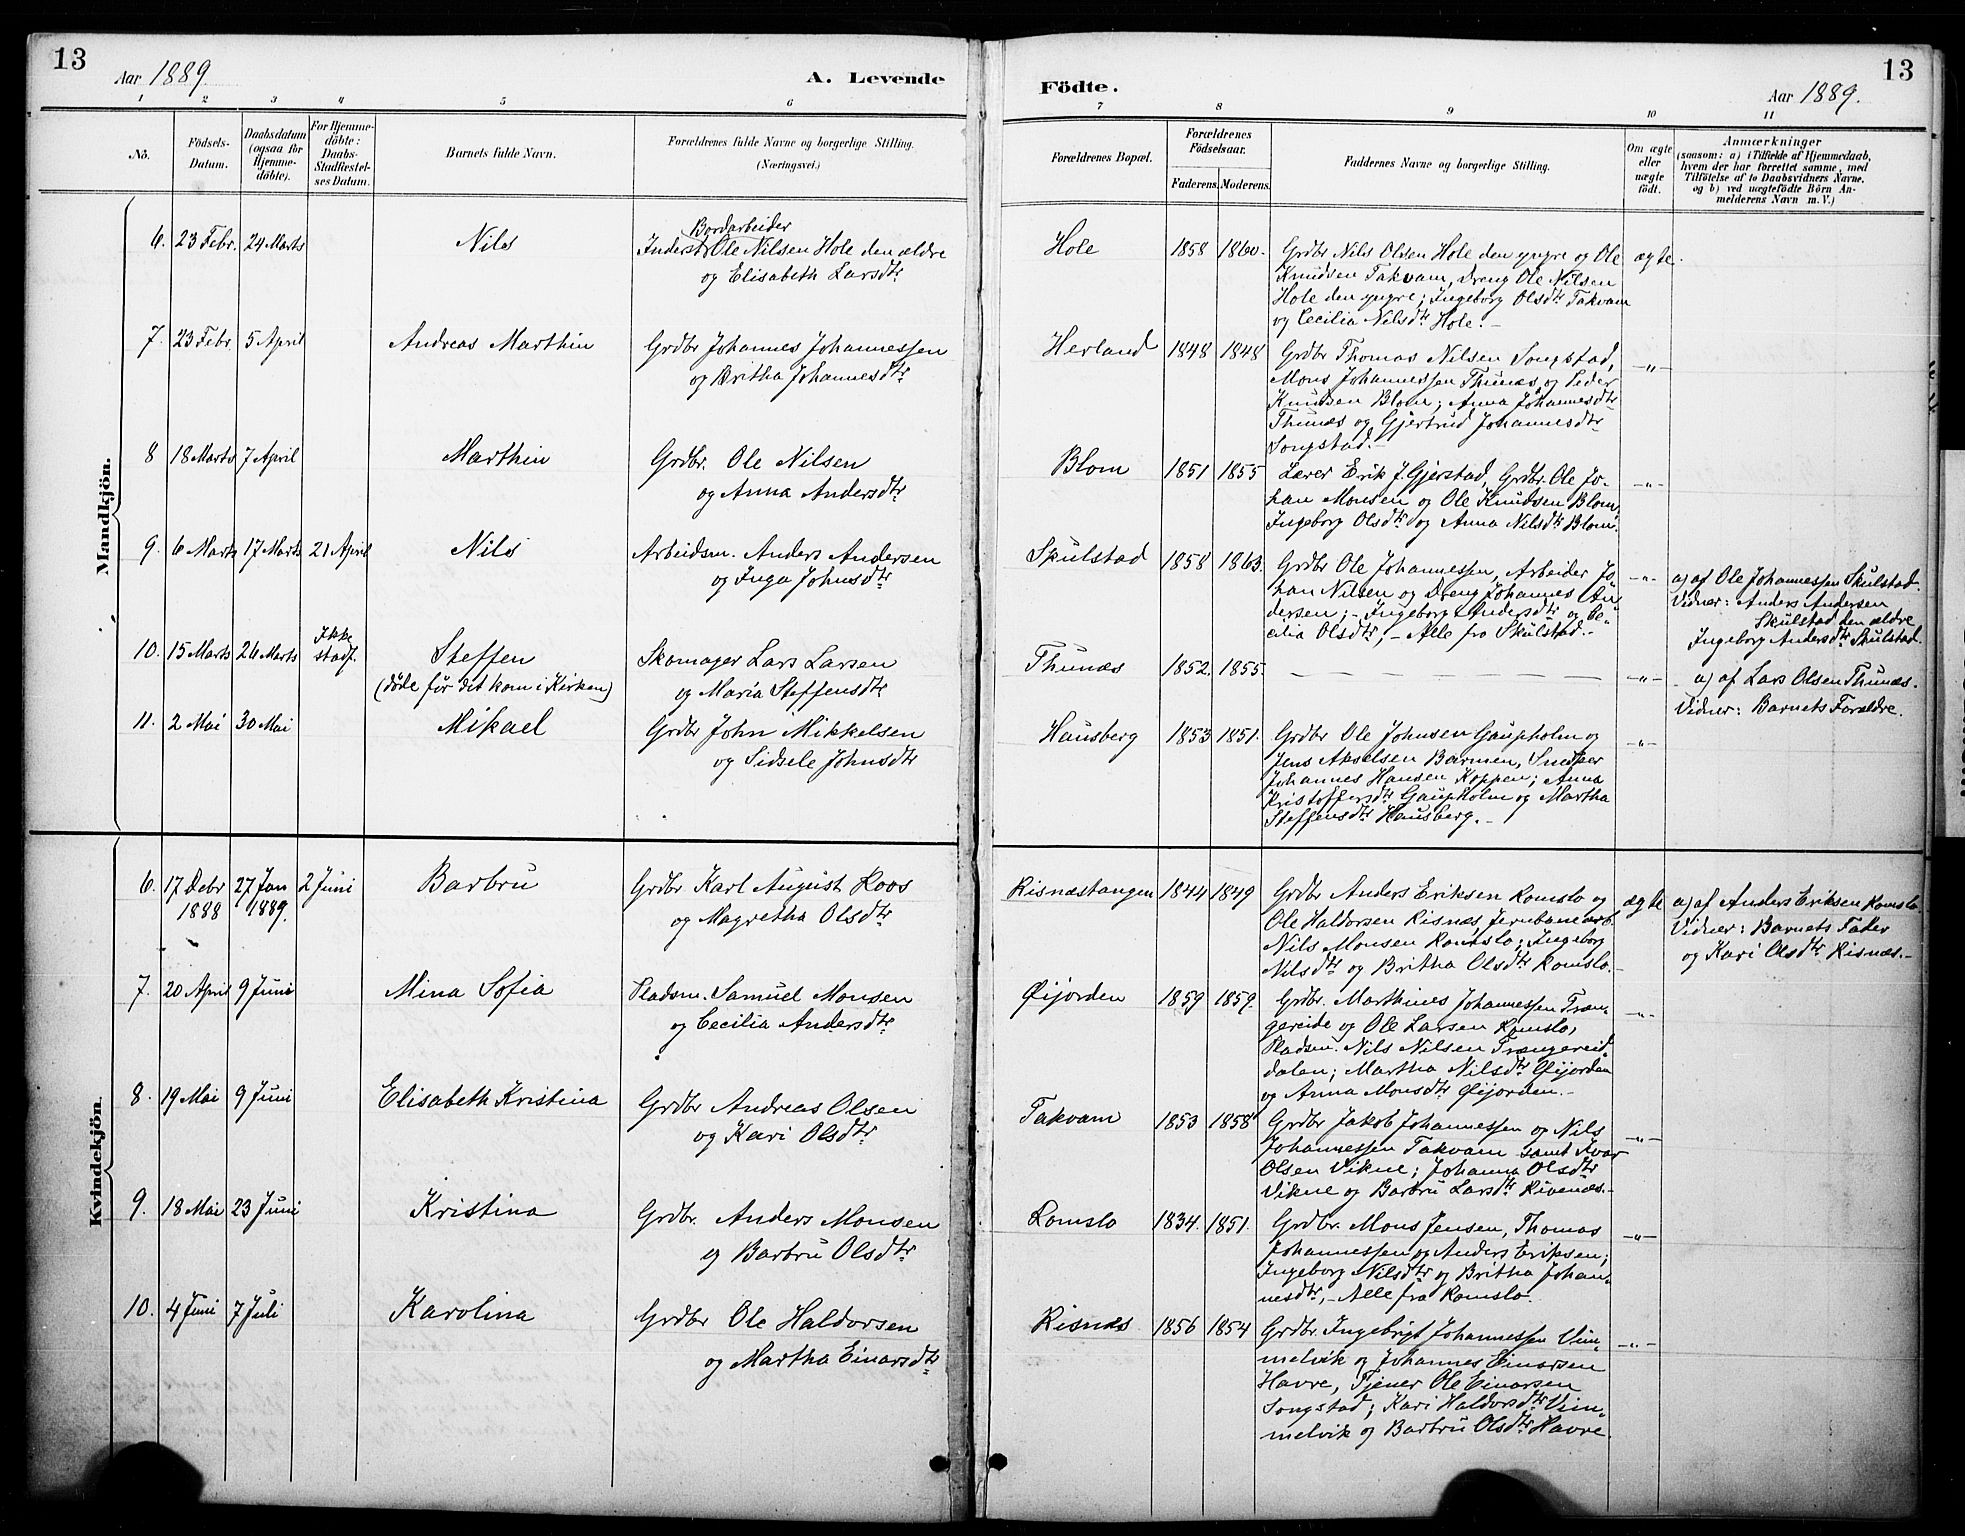 13
Aar 1889.
A. Levende
1 2 3 4 5 6
No.
Födsels-
Datum.
Daabsdatum
(ogsaa for
Hjemme-
döbte).
For Hjemme-
döbte:
Daabs-
Stadfæstel-
ses Datum.
Barnets fulde Navn.
Forældrenes fulde Navne og borgerlige Stilling.
(Næringsvei.)
Mandkjön.
Bordarbeider
6. 23 Febr. 24 Marts Nils Inderst Ole Nilsen Hole den ældre
og Elisabeth Larsdtr
7. 23 Febr. 5 April Andreas Marthin Grdbr Johannes Johannessen
og Britha Johannesdtr
8 18 Marts 7 April Marthin Grdbr. Ole Nilsen
og Anna Andersdtr
9. 6 Marts 17 Marts 21 April Nils Arbeidsm. Anders Andersen
og Inga Johnsdtr
10. 15 Marts 26 Marts Ikke
stadf. Steffen Skomager Lars Larsen
(döde för det kom i Kirken) og Maria Steffensdtr
11. 2 Mai 30 Mai Mikael Grdbr John Mikkelsen
og Sidsele Johnsdtr
Kvindekjön.
6. 17 Debr 27 Jan 2 Juni Barbru Grdbr Karl August Roos
1888 1889. og Magretha Olsdtr
7. 20 April 9 Juni Mina Sofia Pladsm. Samuel Monsen
og Cecilia Andersdtr
8. 19 Mai 9 Juni Elisabeth Kristina Grdbr Andreas Olsen
og Kari Olsdtr
9. 18 Mai 23 Juni Kristina Grdbr. Anders Monsen
og Barbru Olsdtr
10. 4 Juni 7 Juli Karolina Grdbr Ole Haldorsen
og Martha Einarsdtr
13
Födte.
Aar 1889.
7 8 9 10 11
Forældrenes Bopæl.
Forældrenes
Födselsaar.
Faderens. Moderens.
Faddernes Navne og borgerlige Stilling.
Om ægte
eller
uægte
födt.
Anmærkninger
(saasom: a) i Tilfælde af Hjemmedaab,
hvem der har forrettet samme, med
Tilföielse af to Daabsvidners Navne,
og b) ved uægtefödte Börn An-
melderens Navn m. V.)
Hole 1858 1860. Grdbr Nils Olsen Hole den yngre og Ole ægte.
Knudsen Takvam, Dreng Ole Nilsen
Hole den yngre; Ingeborg Olsdtr Takvam
og Cecilia Nilsdtr Hole.-
Herland 1848 1848 Grdbr Thomas Nilsen Songstad, -"-
Mons Johannessen Thunæs og Peder
Knudsen Blom; Anna Johannesdtr
Thunæs og Gjertrud Johannesdtr
Songstad.-
Blom 1851 1855 Lærer Erik J. Gjerstad, Grdbr. Ole Jo- -"-
han Monsen og Ole Knudsen Blom,
Ingeborg Olsdtr og Anna Nilsdtr Blom.
Skulstad 1858 1863. Grdbr Ole Johannessen, Arbeider Jo- -"-
han Nilsen og Dreng Johannes An-
dersen; - Ingeborg Andersdtr og Ce-
cilia Olsdtr, - Alle fra Skulstad.-
a) af Ole Johannessen Skulstad.
Vidner: Anders Andersen
Skulstad den ældre
Ingeborg Andersdtr Skulstad.
Thunæs 1852. 1855. - - - - - - - -"- a) af Lars Olsen Thunæs.
Vidner: Barnets Forældre.
Hausberg 1853 1851. Grdbr Ole Johnsen Gaupholm og -"-
Jens Akselsen Barmen, Snedker
Johannes Hansen Koppen; Anna
Kristoffersdtr Gaupholm og Martha
Steffensdtr Hausberg.-
Risnæstangen 1844 1849 Grdbr Anders Eriksen Romslo og ægte a) af Anders Eriksen Romslo.
Ole Haldorsen Risnæs, Jernbanearb. Vidner: Barnets Fader
Nils Monsen Romslo; Ingeborg og Kari Olsdtr Risnæs.-
Nilsdtr og Britha Olsdtr Romslo.-
Øijorden 1859 1859. Grdbr. Marthines Johannessen Træn- -"-
gereide og Ole Larsen Romslo,
Pladsm. Nils Nilsen Trængereid-
dalen; Martha Nilsdtr Øijorden
og Anna Monsdtr Øijorden.-
Takvam 1853 1858 Grdbr Jakob Johannessen og Nils -"-
Johannessen Takvam samt Ivar
Olsen Vikne; Johanna Olsdtr
Vikne og Barbru Larsdtr Rivenæs.-
Romslo 1834. 1851. Grdbr. Mons Jensen, Thomas -"-
Johannessen og Anders Eriksen;
Ingeborg Nilsdtr og Britha Johan-
nesdtr, - Alle fra Romslo.
Risnæs 1856 1854 Grdbr. Ingebrigt Johannessen Vim- -"-
melvik og Johannes Einarsen
Havre, Tjener Ole Einarsen
Songstad; Kari Haldorsdtr Vim-
melvik og Barbru Olsdtr Havre.